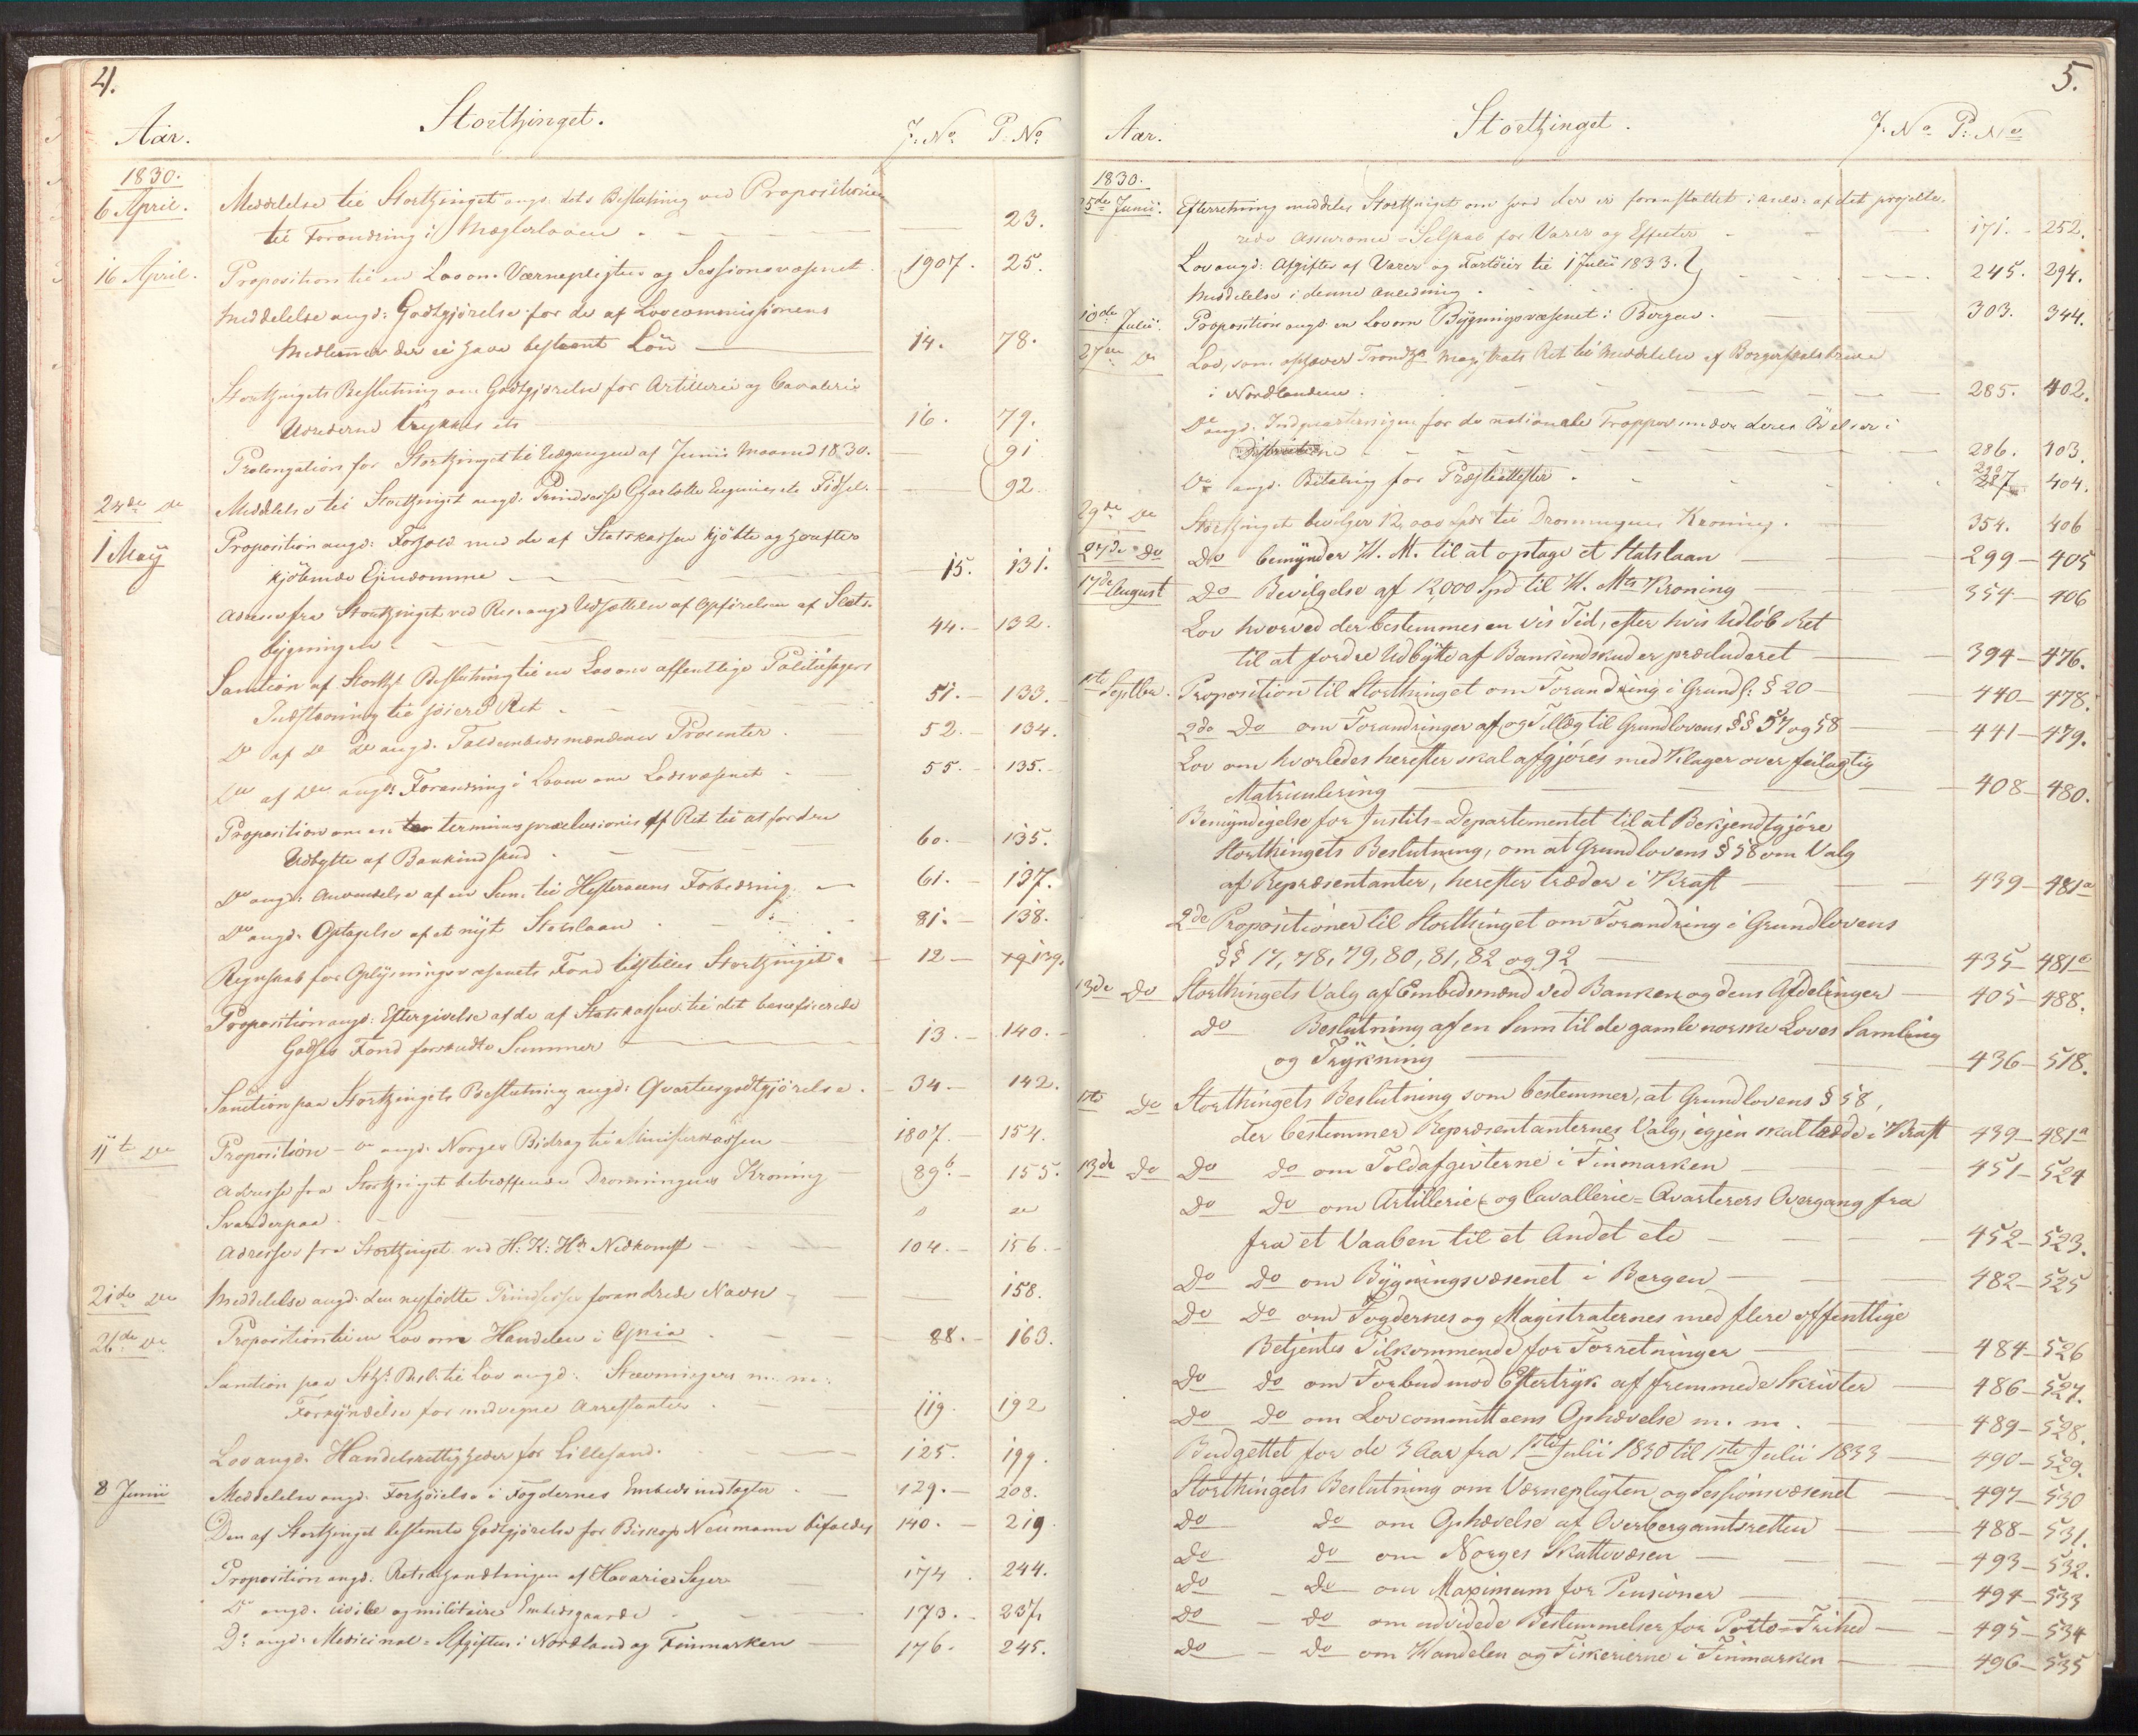 4.
Storthinget.
Aar. J. No P. No
1830.
6 April. Meddelelse til Storthinget angd. dets Beslutning ved Propositionen
til Forandring i Mæglerloven - 23.
16 April. Proposition til en Lov om Værnepligten og Sessionsvæsenet. 1907. 25.
Meddelelse angd: Godtgjörelse for de af Lovcommissionens
Medlemmer der ei have bestemt Lön 14. 78.
Storthingets Beslutning om Godtgjörelse for Artillerie og Cavalerie
trykkes etc 16. 79.
Prolongation for Storthinget til Udgangen af Junii Maaned 1830. 91
24de Do Meddelelse til Storthinget angd. Prindsesse Charlotte Eugenies etc Födsel. 92.
1 May Proposition angd: Forhold med de af Statskassen kjöbte og
kjöbende Eiendomme 15. 131.
Adresse fra Storthinget ved Res. angd Udsættelse af Opförelsen af Slots-
bygningen 44. 132.
Sanction af Storths Beslutning til en Lov om offentlige Politiesagers
Indstævning til höiere Ret 51. 133.
Do af Do Do angd. Toldembedsmændenes Procenter. 52. 134.
Do af Do angd: Forandring i Loven om Lodsvæsenet 55. 135.
Proposition om en terminus præclusionis af Ret til at fordre
Udbytte af Bankindskud 60. 135.
Do angd. Anvendelse af en Sum til Hesteracens Forbedring 61. 137.
Do angd. Optagelse af et nyt Statslaan 81. 138.
Regnskab for Oplysningsvæsenets Fond tilstilles Storthinget. 12 139.
Proposition angd: Eftergivelse af de af Statskassen til det beneficerede
Godses Fond forskudte Summer 13. 140.
Sanction paa Storthingets Beslutning angd: Qvarteersgodtgjörelse. 34. 142.
11te Do Proposition - Do angd. Norges Bidrag til Ministerkassen 1807. 154.
Adresse fra Storthinget betræffende Dronningens Kroning 89b. 155.
Svar derpaa. " "
Adresser fra Storthinget ved H: K: Hs Nedkomst 104. 156.
21de Do Meddelelse angd. den nyfödte Prindsesses forandrede Navn 158.
26de Do Proposition til en Lov om Handelen i 88. 163.
Sanction paa Sths Besl. til Lov angd. Stævningers m. m.
Forkyndelse for undvegne Arrestanter 119. 192
Lov angd. Handelsrettigheder for Lillesand. 125. 199.
8 Junii Meddelelse angd. Forhöielse i Fogdernes Embedsindtægter 129. 208.
Den af Storthinget bestemte Godtgjörelse for Biskop Neumann bifaldes 140. 219.
Proposition angd. Retsbehandlingen af Havarie-Sager 174. 244.
Do angd. civile og militaire Embedsgaarde 173. 237.
Do angd. Medicinal-Afgiften i Nordland og Finmarken 176. 245.
5.
Storthinget.
Aar. J. No P: No
1830.
25de Junii. Efterretning meddeles Storthinget om hvad der er foranstaltet i Anled: af det projecte-
rede Assurance-Selskab for Varer og Effecter 171. 252.
Lov angd: Afgifter af Varer og Fartöier til 1 Julii 1833.
Meddelelse i denne Anledning 245. 294.
10de Julii. Proposition angd. en Lov om Bygningsvæsenet i Bergen. 303. 344.
27de Do Lov, som ophæver Trondhs Magistrats Ret til Meddelelse af Borgerskabsbreve
i Nordlandene 285. 402.
Do angd. Indqvarteringen for de nationale Tropper under deres Övelser i
Districterne 286. 403.
Do angd. Betaling for Præsteattester 287. 404.
29de Do Storthinget bevilger 12,000 Spd. til Dronningens Kroning. 354. 406
27de Do Do bemynder H. M. til at optage et Statslaan 299 - 405
17de August Do Bevilgelse af 12,000 Spd til H. Mts Kroning 354 - 406
Lov hvorved der bestemmes en vis Tid, efter hvis Udlöb Ret
til at fordre Udbytte af Bankindskud er præcluderet 394 - 476.
1ste Septbr. Proposition til Storthinget om Forandring i Grundl: § 20 440 - 478.
2de Do om Forandringer af og Tillæg til Grundlovens §§ 57 og 58 441 - 479.
Lov om hvorledes herefter skal afgjöres med Klager over feilagtig
Matriculering 408 - 480.
Bemyndigelse for Justits-Departementet til at Bekjendtgjöre
Storthingets Beslutning, om at Grundlovens § 58 om Valg
af Repræsentanter, herefter træder i Kraft 439 - 481a
2de Propositioner til Storthinget om Forandring i Grundlovens
§§ 17, 78, 79, 80, 81, 82 og 92 435 - 481
13de Do Storthingets Valg af Embedsmænd ved Banken og dens Afdelinger 405 - 488.
Do Beslutning af en Sum til de gamle norske Loves Samling
og Trykning 436 - 518.
1ste Do Storthingets Beslutning som bestemmer, at Grundlovens § 58,
der bestemmer Repræsentanternes Valg, igjen skal træde i Kraft 439 - 481a
13de Do Do Do om Toldafgivterne i Finmarken 451 - 524
Do Do om Artillerie- og Cavallerie-Qvarterers Overgang fra
fra et Vaaben til et Andet etc 452 - 523.
Do Do om Bygningsvæsenet i Bergen 482 - 525
Do Do om Fogdernes og Magistraternes med flere offentlige
Betjentes Tilkommende for Forretninger 484 - 526
Do Do om Forbud mod Eftertryk af fremmede Skrivter 486 - 527.
Do Do om Lovcommitteens Ophævelse m. m. 489 - 528.
Budgettet for de 3 Aar fra 1ste Julii 1830 til 1ste Julii 1833 490 - 529.
Storthingets Beslutning om Værnepligten og Sessionsvæsenet 497 - 530
Do Do om Ophævelse af Overbergamtsretten 488 - 531.
Do Do om Norges Skattevæsen 493 - 532.
Do Do om Maximum for Pensioner 494 - 533
Do Do om udvidede Bestemmelser for Porto-Frihed 495 - 534
Do Do om Handelen og Fiskerierne i Finmarken 496 - 535